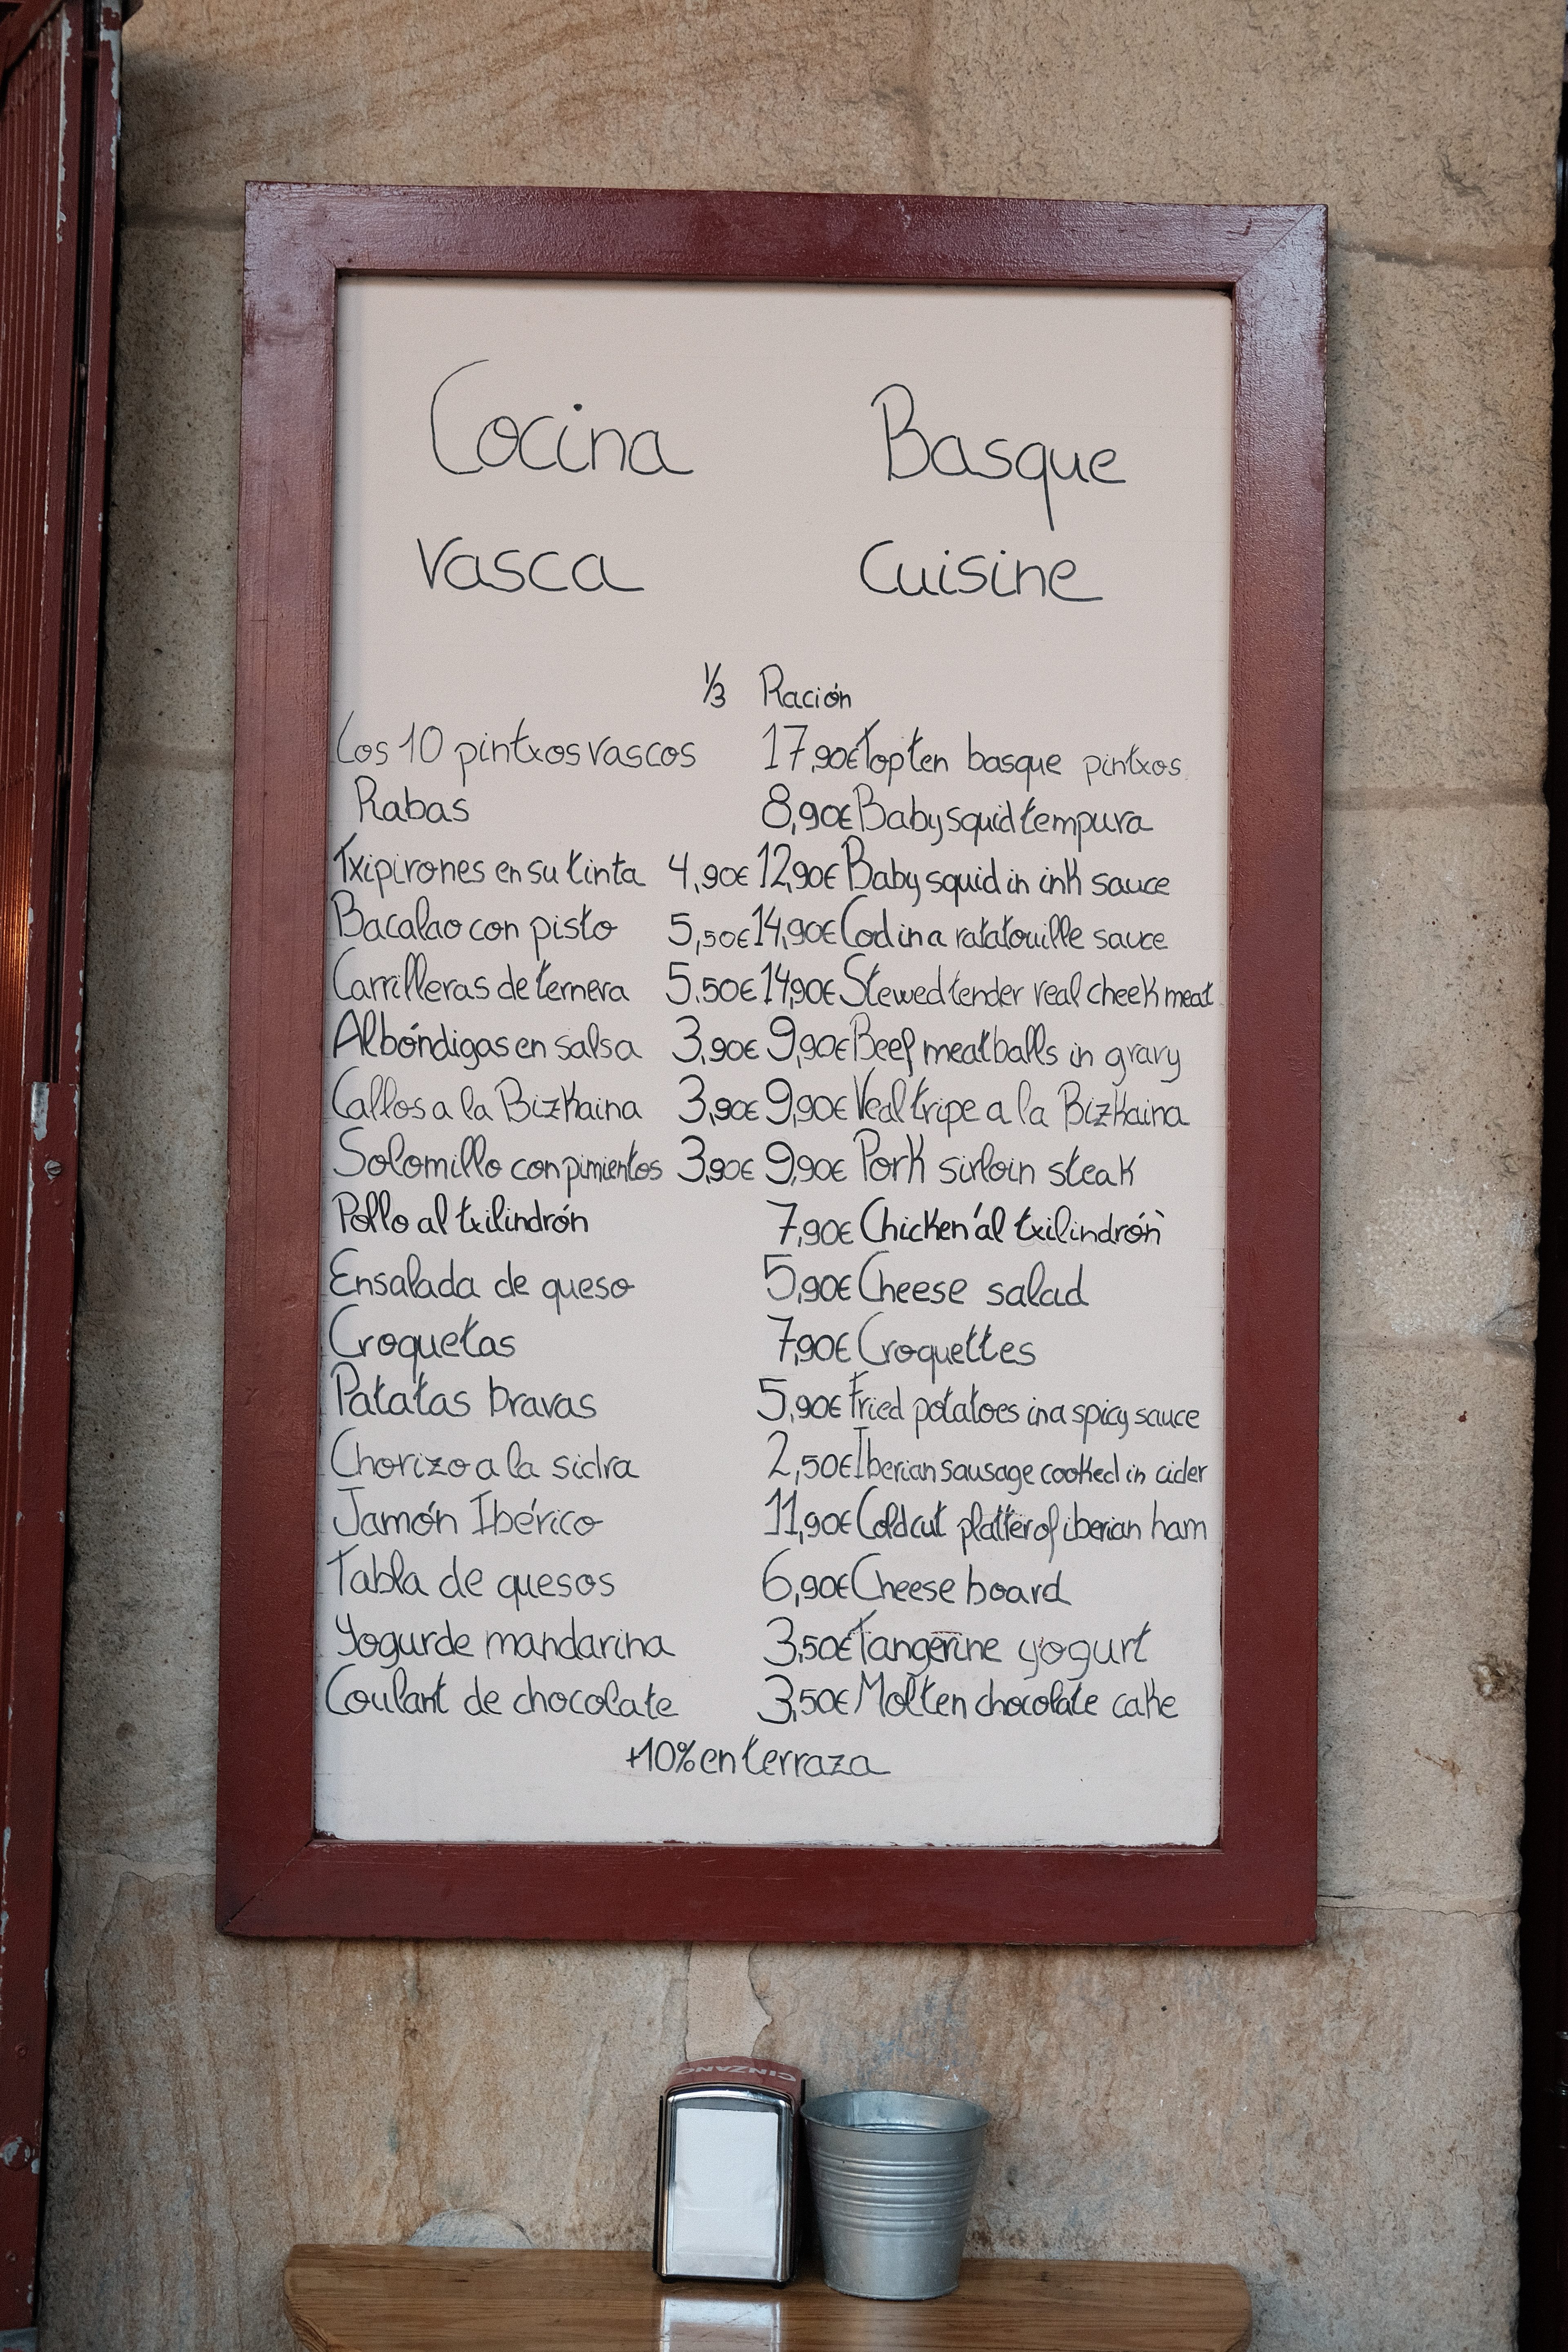 Cocina Basque
vasca Cuisine
1/3 Ración
Los 10 pintxos vascos 17,90€ Top ten basque pintxos
Rabas 8,90€ Baby squid tempura
Txipirones en su tinta 4,90€ 12,90€ Baby squid in ink sauce
Bacalao con pisto 5,50€ 14,90€ Cod in a ratatouille sauce
Carrilleras de ternera 5.50€ 14,90€ Stewed tender veal cheek meat
Albóndigas en salsa 3,90€ 9,90€ Beef meatballs in gravy
Callos a la Bizkaina 3,90€ 9,90€ Veal tripe a la Bizkaina
Solomillo con pimientos 3,90€ 9,90€ Pork sirloin steak
Pollo al txilindrón 7,90€ Chicken ´al txilindrón`
Ensalada de queso 5,90€ Cheese salad
Croquetas 7,90€ Croquettes
Patatas bravas 5,90€ Fried potatoes in a spicy sauce
Chorizo a la sidra 2,50€ Iberian sausage cooked in cider
Jamón Ibérico 11,90€ Cold cut platter of iberian ham
Tabla de quesos 6,90€ Cheese board
Yogur de mandarina 3,50€ Tangerine yogurt
Coulant de chocolate 3,50€ Molten chocolate cake
+10% en terraza
CINZANO